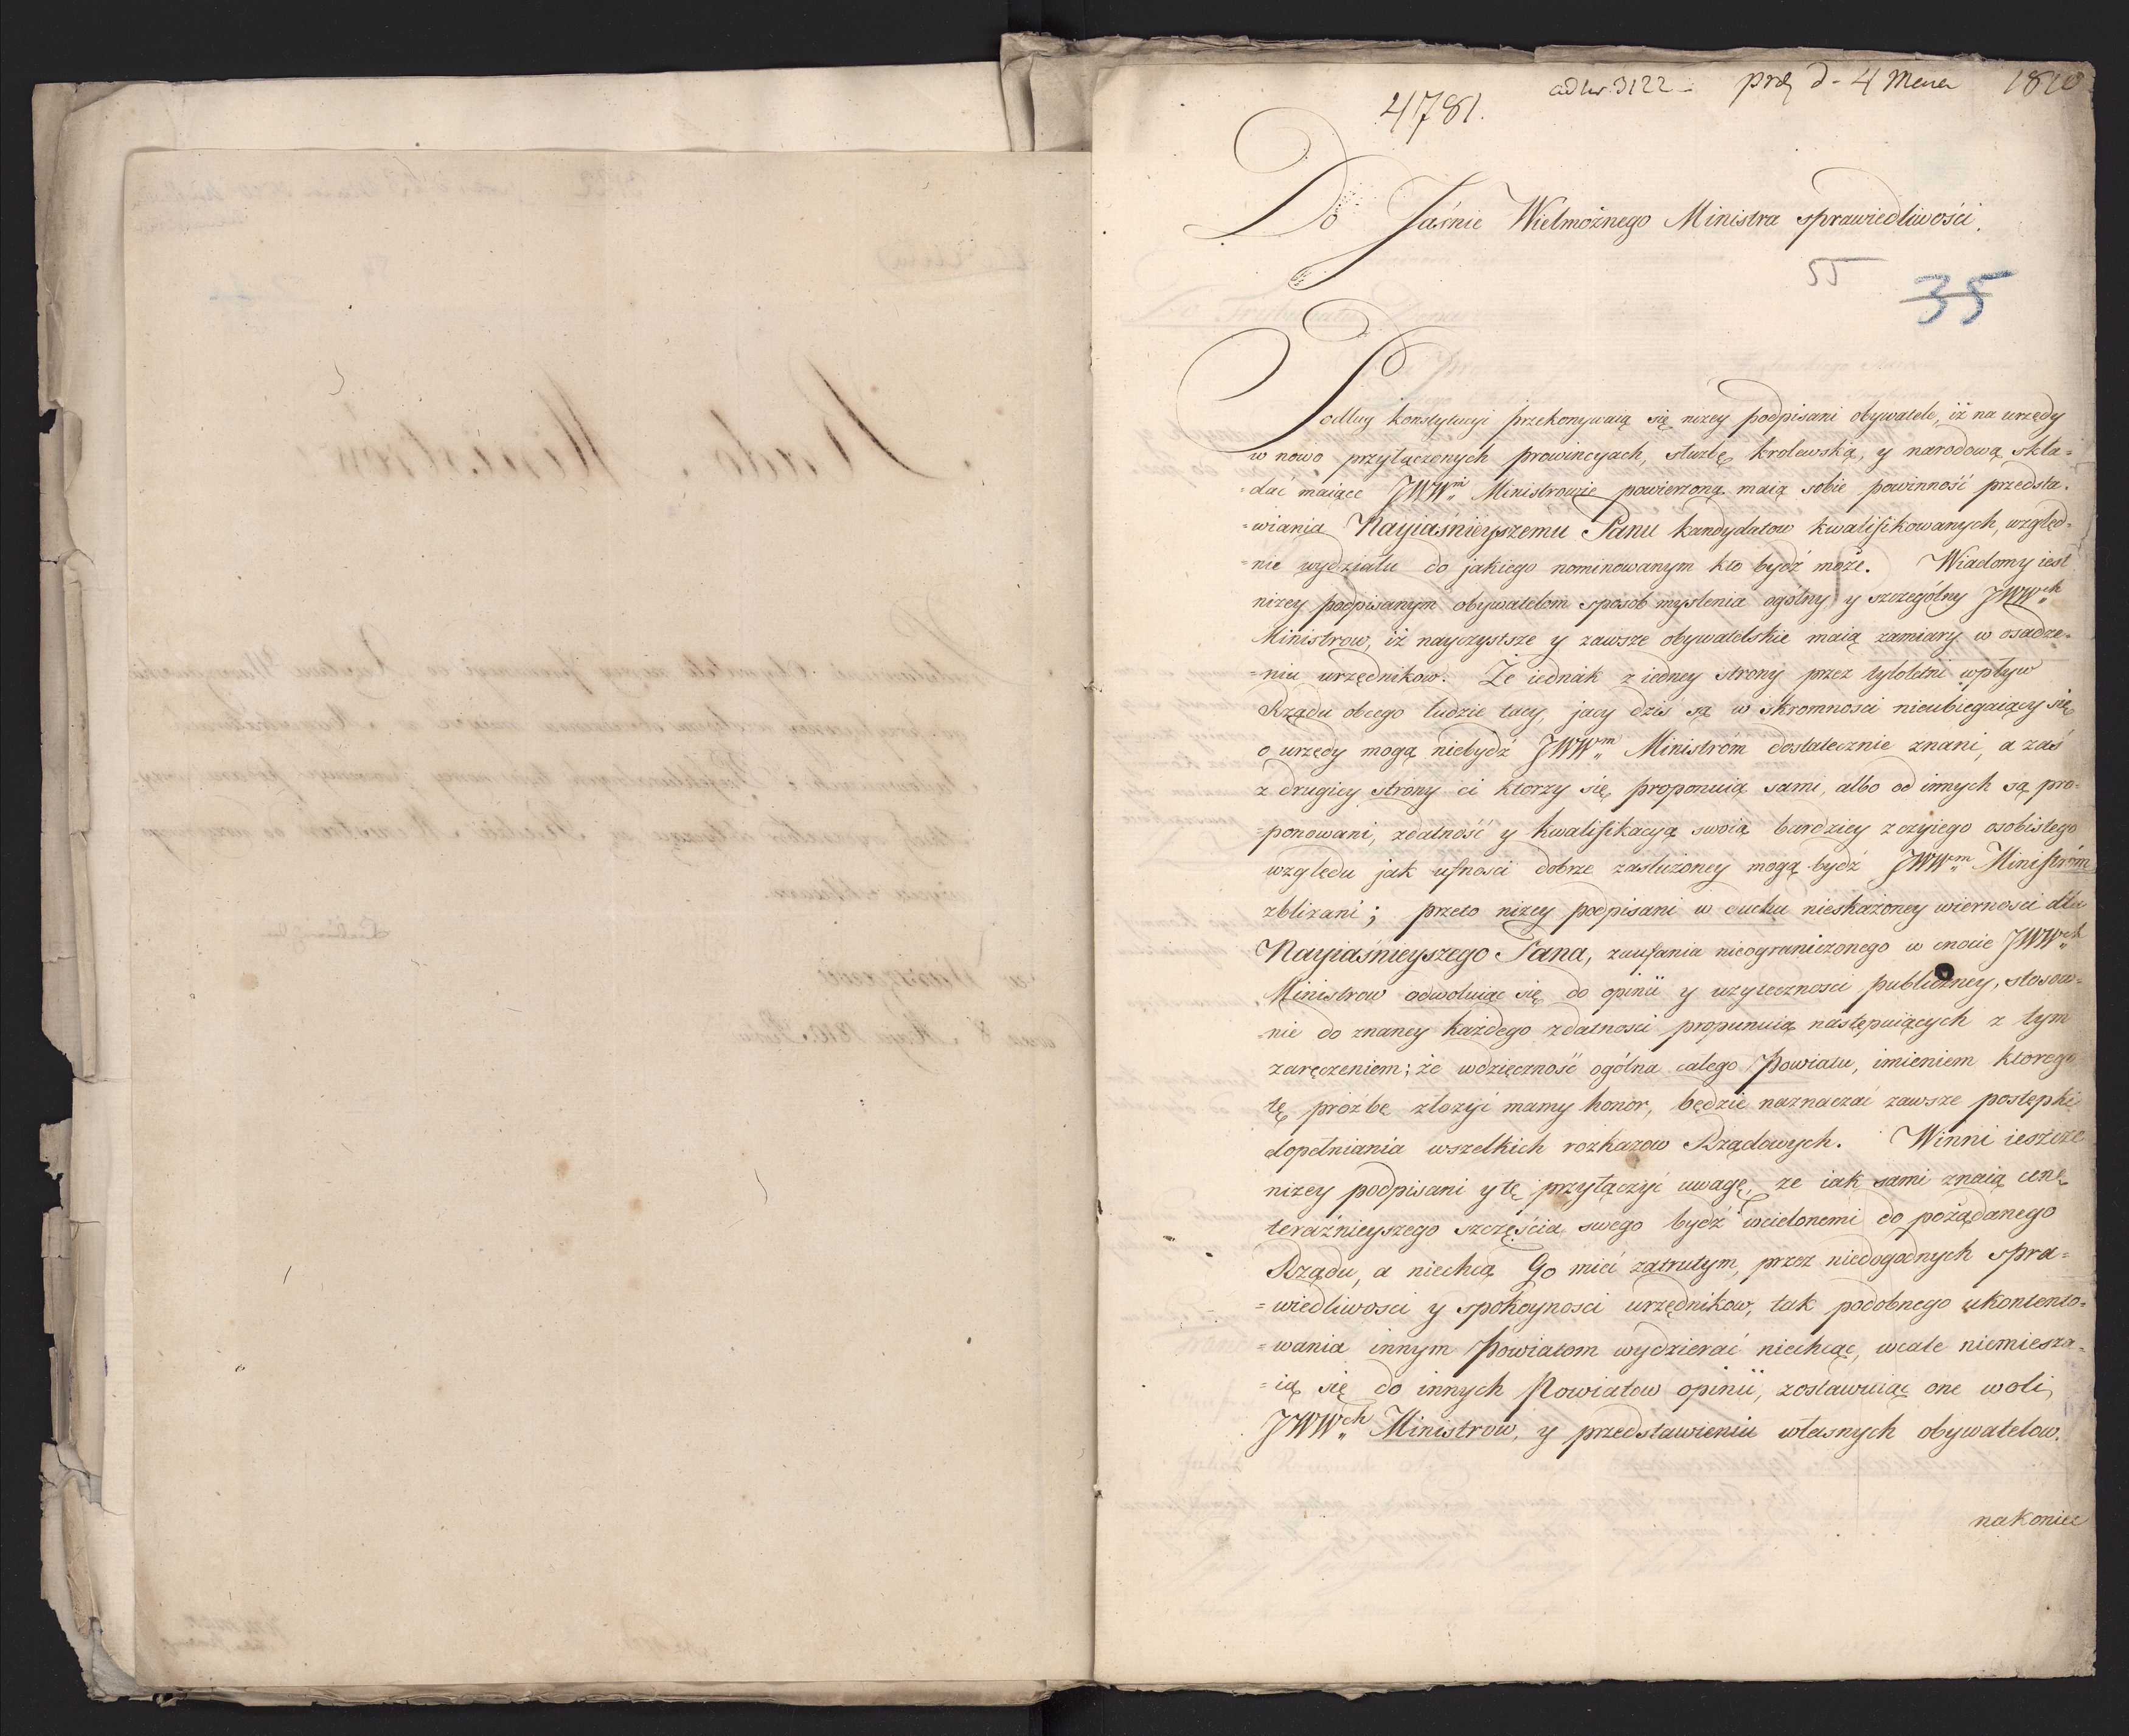 4781.
ad Nr 3122 prz d. 4 1810
Do Jaśnie Wielmożnego Ministra sprawiedliwości.
55
35
Podług konstytucyi przekonywaią się niżey podpisani obywatele, iż na urzędy
w nowo przyłączonych prowincyach, służbę krolewską, y narodową skła=
=dać maiące JWWni Ministrowie powierzoną maią sobie powinność przedsta=
=wiania Nayiaśnieyszemu Panu kandydatow kwalifikowanych, względ=
=nie wydziału do jakiego nominowanym kto bydź może. Wiadomy iest
niżey podpisanym obywatelom sposob myslenia ogólny y szczególny JWWch
Ministrow, iż nayczystsze y zawsze obywatelskie maią zamiary w osadze=
=niu urzędnikow. Że iednak z iedney strony przez tyloletni wpływ
Rządu obcego ludzie tacy, jacy dziś są w skromnosci nieubiegaiący się
o urzędy mogą niebydź JWWm Ministróm dostatecznie znani, a zaś
z drugiey strony ci ktorzy się proponuią sami, albo od innych są pro=
=ponowani, zdatność y kwalifikacyą swoią bardziey z czyiego osobistego
względu jak ufnosci dobrze zasłużoney mogą bydź JWWm Ministróm
zbliżani; przeto niżey podpisani w duchu nieskażoney wiernosci dla
Nayiaśnieyszego Pana, zaufania nieograniczonego w cnocie JWWch
Ministrow odwołuiąc się do opinii y użyteczności publiczney, stosow=
=nie do znaney każdego zdatnosci propunuią następuiących z tym
zaręczeniem; że wdzięczność ogólna całego Powiatu, imieniem ktorego
tę proźbę złożyć mamy honor, będzie naznaczać zawsze postępki
dopełniania wszelkich rozkazow Rządowych. Winni ieszcze
niżey podpisani y tę przyłączyć uwagę, że iak sami znaią cenę
teraźnieyszego szczęścia swego bydź wcielonemi do pożądanego
Rządu, a niechcą Go mieć zatrutym, przez niedogodnych spra=
=wiedliwosci y spokoynosci urzędnikow, tak podobnego ukontento=
=wania innym Powiatom wydzierać niechcąc, wcale niemiesza=
=ią się do innych Powiatow opinii, zostawuiąc one woli
JWWch Ministrow, y przedstawieniu własnych obywatelow.
nakoniec